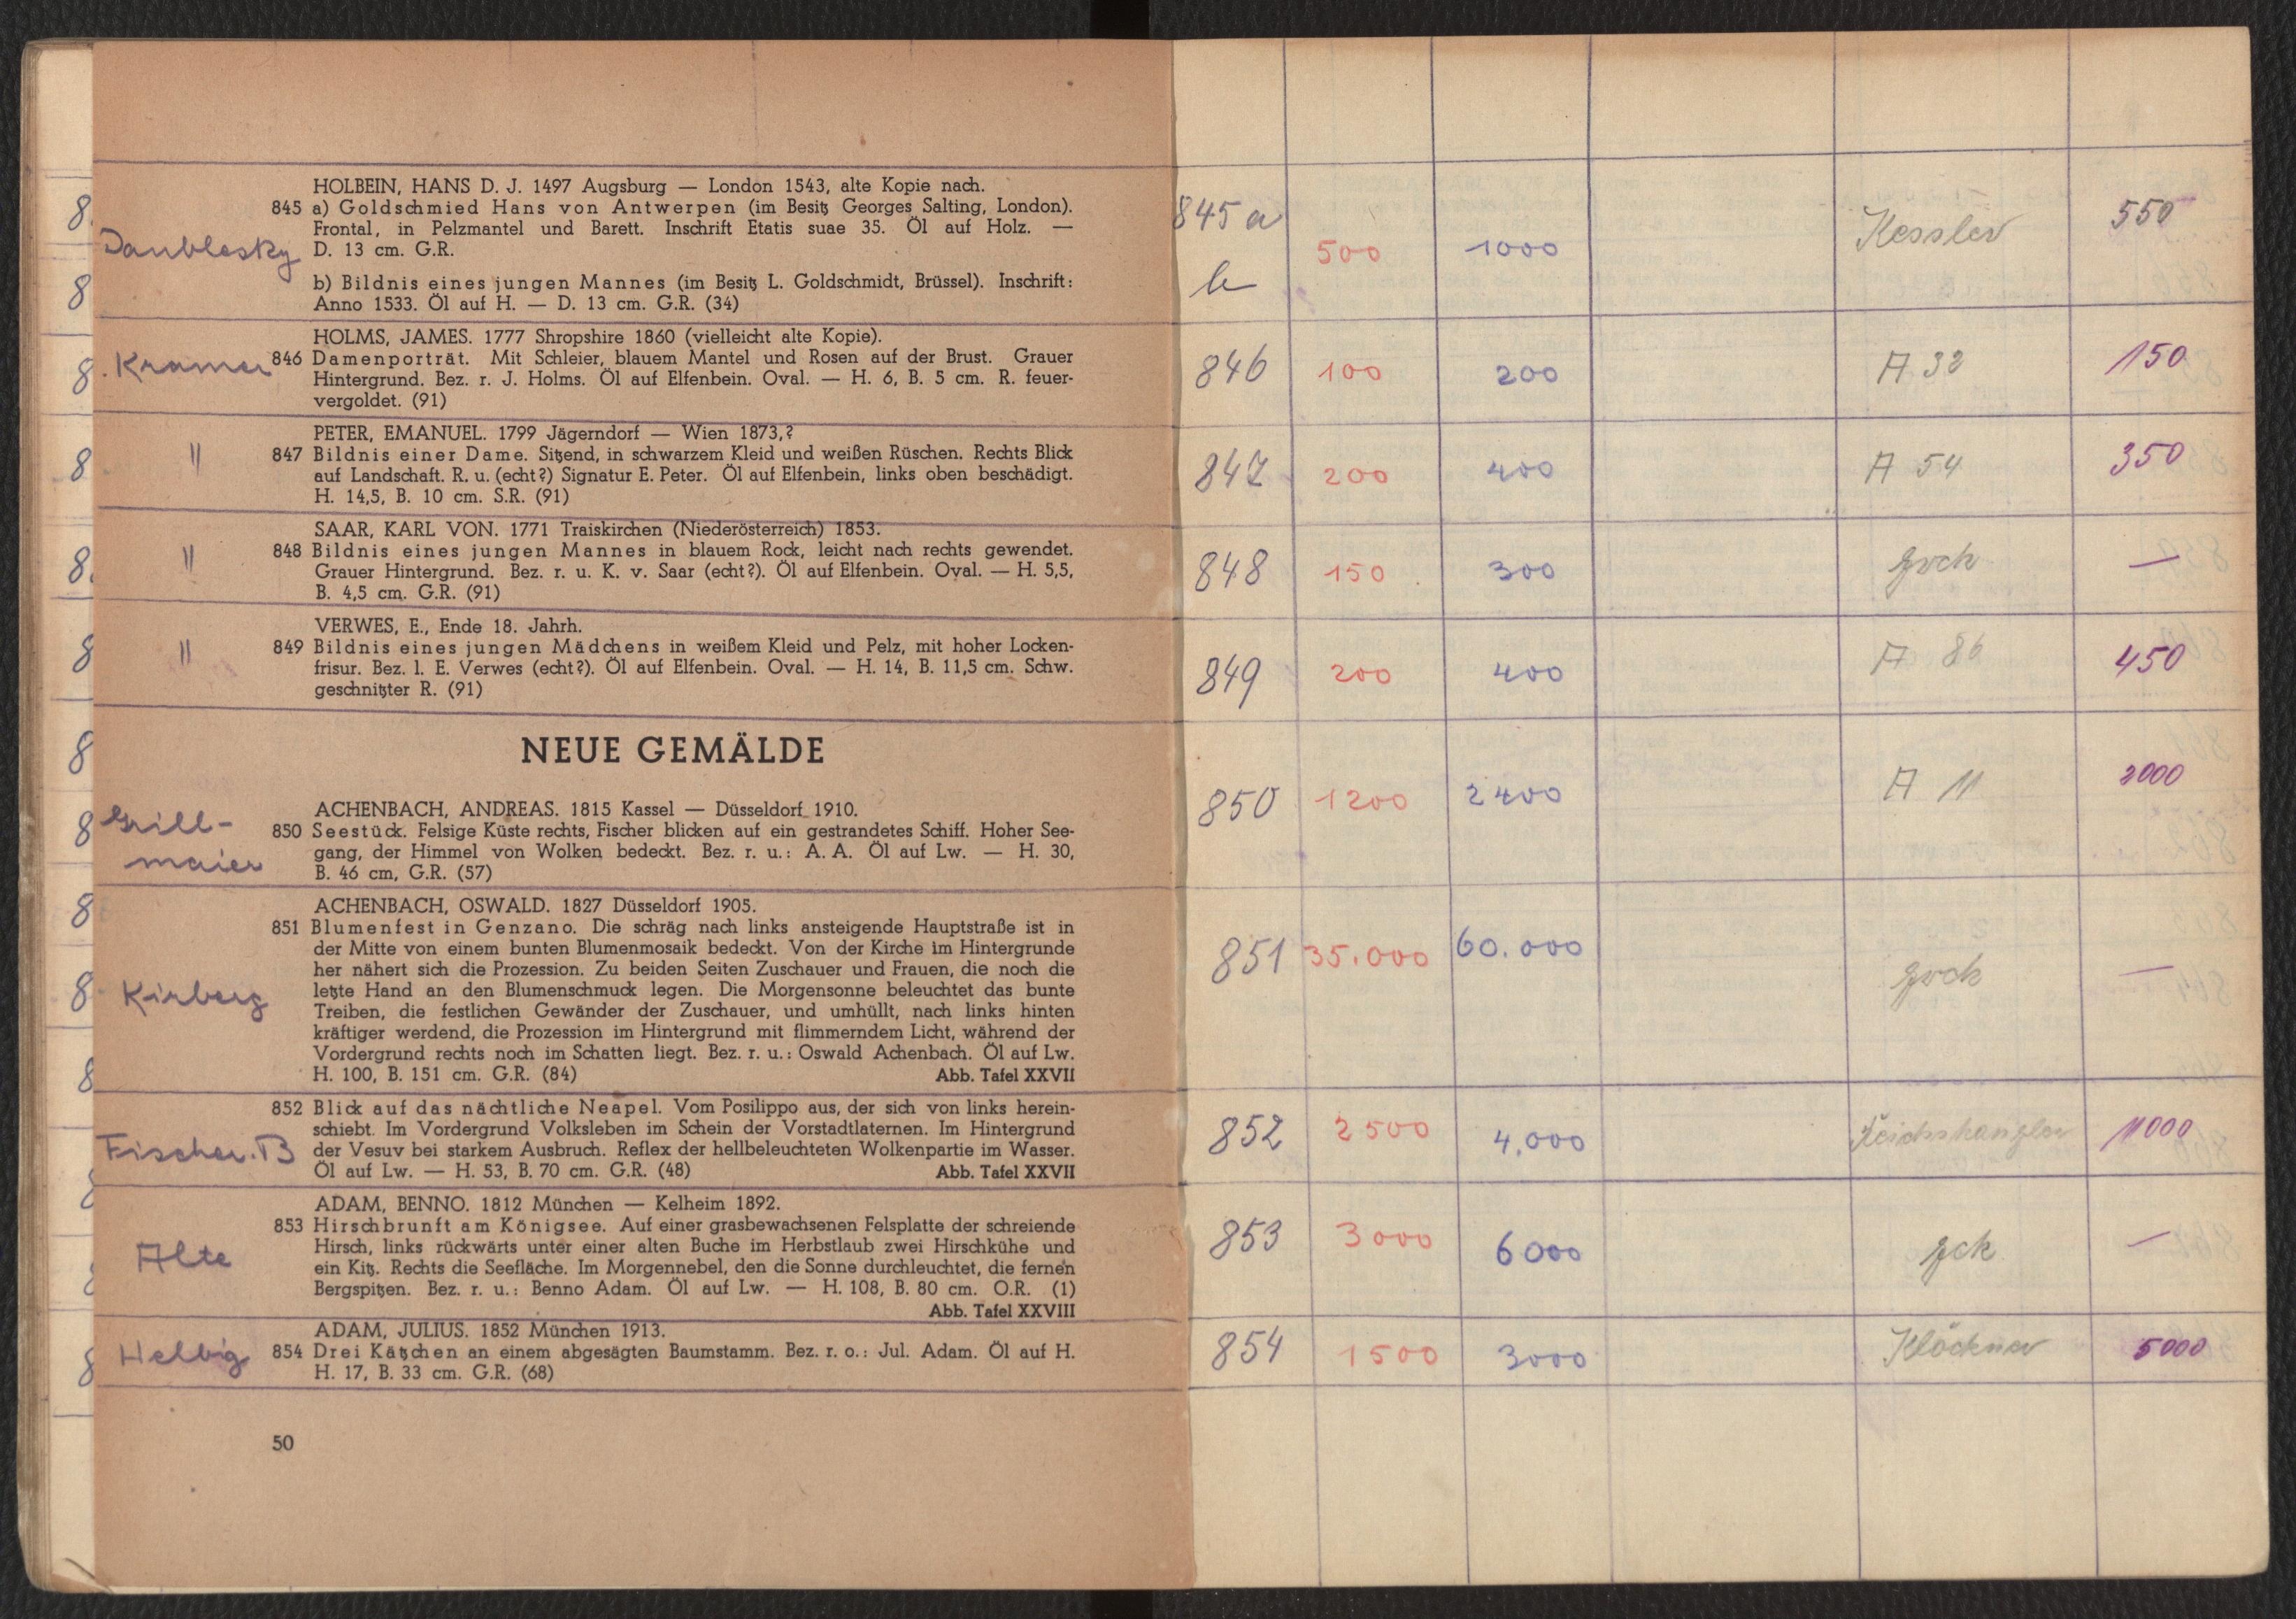 HOLBEIN, HANS D. J. 1497 Augsburg — London 1543, alte Kopie nach.
845 a) Goldschmied Hans von Antwerpen (im Besitz Georges Salting, London).
Frontal, in Pelzmantel und Barett. Inschrift Etatis suae 35. Öl auf Holz. —
D. 13 cm. G.R.
b) Bildnis eines jungen Mannes (im Besitz L. Goldschmidt, Brüssel). Inschrift:
Anno 1533. Öl auf H. — D. 13 cm. G.R. (34)
845 a
b
500 1000 Kessler 550
HOLMS, JAMES. 1777 Shropshire 1860 (vielleicht alte Kopie).
Kramer 846 Damenporträt. Mit Schleier, blauem Mantel und Rosen auf der Brust. Grauer
Hintergrund. Bez. r. J. Holms. Öl auf Elfenbein. Oval. — H. 6, B. 5 cm. R. feuer-
vergoldet. (91)
846 100 200 A 32 150
PETER, EMANUEL. 1799 Jägerndorf — Wien 1873,?
" 847 Bildnis einer Dame. Sitzend, in schwarzem Kleid und weißen Rüschen. Rechts Blick
auf Landschaft. R. u. (echt?) Signatur E. Peter. Öl auf Elfenbein, links oben beschädigt.
H. 14,5, B. 10 cm. S.R. (91)
847 200 400 A 54 350
SAAR, KARL VON. 1771 Traiskirchen (Niederösterreich) 1853.
" 848 Bildnis eines jungen Mannes in blauem Rock, leicht nach rechts gewendet.
Grauer Hintergrund. Bez. r. u. K. v. Saar (echt?). Öl auf Elfenbein. Oval. — H. 5,5,
B. 4,5 cm. G.R. (91)
848 150 300 zrck —
VERWES, E., Ende 18. Jahrh.
" 849 Bildnis eines jungen Mädchens in weißem Kleid und Pelz, mit hoher Locken-
frisur. Bez. l. E. Verwes (echt?). Öl auf Elfenbein. Oval. — H. 14, B. 11,5 cm. Schw.
geschnitzter R. (91)
849 200 400 A 86 450
NEUE GEMÄLDE
ACHENBACH, ANDREAS. 1815 Kassel — Düsseldorf 1910.
Grill-
maier
850 Seestück. Felsige Küste rechts, Fischer blicken auf ein gestrandetes Schiff. Hoher See-
gang, der Himmel von Wolken bedeckt. Bez. r. u.: A. A. Öl auf Lw. — H. 30,
B. 46 cm, G.R. (57)
850 1200 2400 A 11 2000
ACHENBACH, OSWALD. 1827 Düsseldorf 1905.
851 Blumenfest in Genzano. Die schräg nach links ansteigende Hauptstraße ist in
der Mitte von einem bunten Blumenmosaik bedeckt. Von der Kirche im Hintergrunde
her nähert sich die Prozession. Zu beiden Seiten Zuschauer und Frauen, die noch die
Kirberg letzte Hand an den Blumenschmuck legen. Die Morgensonne beleuchtet das bunte
Treiben, die festlichen Gewänder der Zuschauer, und umhüllt, nach links hinten
kräftiger werdend, die Prozession im Hintergrund mit flimmerndem Licht, während der
Vordergrund rechts noch im Schatten liegt. Bez. r. u.: Oswald Achenbach. Öl auf Lw.
H. 100, B. 151 cm. G.R. (84) Abb. Tafel XXVII
851 35.000 60.000 zrck —
852 Blick auf das nächtliche Neapel. Vom Posilippo aus, der sich von links herein-
schiebt. Im Vordergrund Volksleben im Schein der Vorstadtlaternen. Im Hintergrund
Fischer. B der Vesuv bei starkem Ausbruch. Reflex der hellbeleuchteten Wolkenpartie im Wasser.
Öl auf Lw. — H. 53, B. 70 cm. G.R. (48) Abb. Tafel XXVII
852 2500 4.000 Reichskanzler 11000
ADAM, BENNO. 1812 München — Kelheim 1892.
853 Hirschbrunft am Königsee. Auf einer grasbewachsenen Felsplatte der schreiende
Alte Hirsch, links rückwärts unter einer alten Buche im Herbstlaub zwei Hirschkühe und
ein Kitz. Rechts die Seefläche. Im Morgennebel, den die Sonne durchleuchtet, die fernen
Bergspitzen. Bez. r. u.: Benno Adam. Öl auf Lw. — H. 108, B. 80 cm. O.R. (1)
Abb. Tafel XXVIII
853 3000 6000 zck —
ADAM, JULIUS. 1852 München 1913.
Helbig 854 Drei Kätzchen an einem abgesägten Baumstamm. Bez. r. o.: Jul. Adam. Öl auf H.
H. 17, B. 33 cm. G.R. (68)
854 1500 3000 Klöckner 5000
50